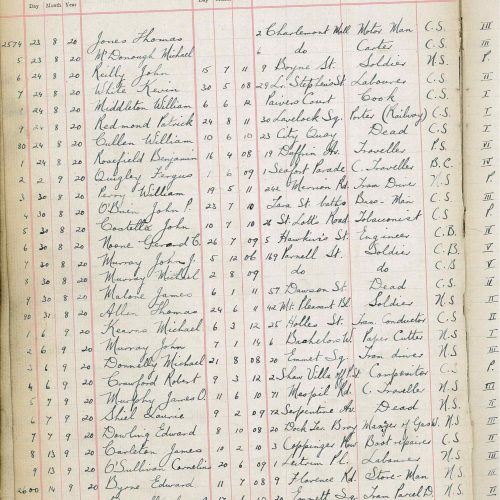 Day Month Year Day Month
2574 23 8 20 Jones Thomas 2 Charlemont Mall Motor Man C.S. III
5 23 8 20 McDonough Michael 6 do Carter C.S.
6 24 8 20 Reilly John 15 7 11 9 Boyne St. Soldier N.S.
7 24 8 20 White Kevin 30 5 08 29 Lr. Stephens St. Labourer C.S.
8 24 8 20 Middleton William 6 6 12 Pavers Court Cook C.S.
9 24 8 20 Redmond Patrick 24 8 11 30 Lovelock Sq. Porter (Railway) C.S.
80 24 8 20 Cullen William 10 6 10 23 City Quay Dead C.S.
1 24 8 20 Rosefield Benjamin 16 4 08 19 Daffin Av. Traveller P.S.
2 2 9 20 Quigley Fergus 1 6 09 1 Seafort Parade C. Traveller B.C.
3 30 8 20 Perry William 19 5 11 242 Merrion Rd. Tram Driver N.S.
4 30 8 20 O'Brien John P. 23 7 10 Tara St. baths Bus-Man C.S.
5 30 8 20 Costello John 10 7 10 26 St. Lotts Road Tobacconist C.S.
6 30 8 20 Noone Gerard C. 26 7 09 5 Hawkin's St. Engineer C.B.
7 30 8 20 Murray John J. 5 12 06 169 Parnell St. Soldier C.B.
8 30 8 20 Murray Michael 2 8 09 do do C.B.
9 30 8 20 Malone James 6 1 11 57 Dawson St. Dead C.S.
90 31 8 20 Allen Thomas 24 6 11 42 Mt. Pleasant Bl. Soldier N.S.
1 6 9 20 Kearns Michael 6 3 12 25 Holles St. Tram Conductor C.S.
2 6 9 20 Murray John 7 1 14 6 Bachelors W. Paper Cutter N.S.
3 6 9 20 Donnelly Michael 21 8 08 20 Emmet Sq. Tram driver N.S.
4 6 9 20 Crawford Robert 9 3 12 2 Shaw Ville off St. Carpenter
5 7 9 20 Murphy James O. 11 6 10 71 Mespil Rd. C. Traveller N.S.
6 7 9 20 Shiel Laurie 9 2 09 72 Serpentine Av. Dead N.S.
7 7 9 20 Dowling Edward 8 10 08 20 Dock Ter. Manager of Gas W. N.S.
8 13 9 20 Carleton James 10 2 10 3 Coppinger Row Boot repairer C.S.
9 13 9 20 O'Sullivan Cornelius 20 6 09 1 Leitrim Pl. Labourer N.S.
2600 14 9 20 Byrne Edward 11 7 08 9 Florence Rd. Store-Man N.S.